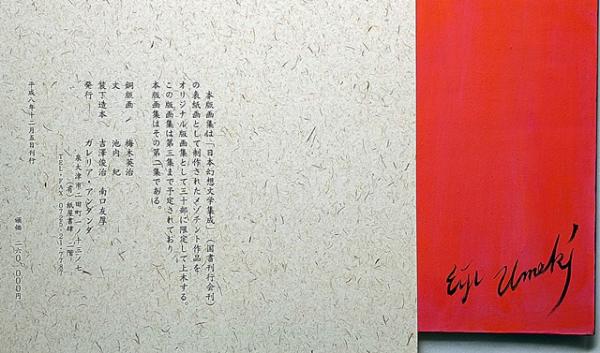 本版画集は「日本幻想文学集成」(国書刊行会刊)
の表紙画として制作されたメゾチント作品を
オリジナル版画集として三十部に限定して上木する。
この版画集は第三集まで予定されており
本版画集はその第二集である。
銅版画 梅木英治
文 池内 紀
装丁造本 吉澤俊治 南口友厚
発行 ガレリア・アンダンタ
泉大津市二田町一ノ十三ノ七
(有)紙屋書肆 二階
TEL・FAX 0725・21・7787
平成八年十二月五日刊行
頒価 二六〇、〇〇〇円
Eiji Umeki